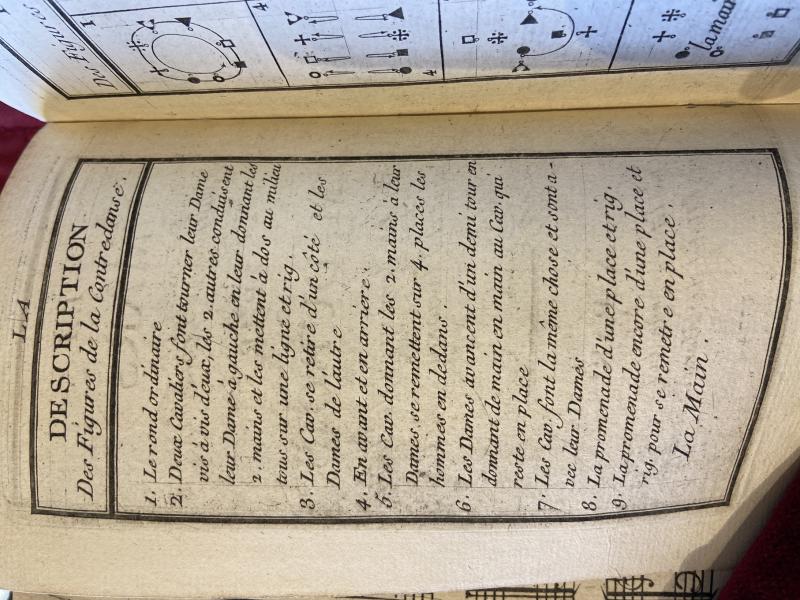 LA
DESCRIPTION
Des Figures de la Contredanse.
1. Le rond ordinaire
2. Deux Cavaliers font tourner leur Dame
vis à vis d'eux, les 2. autres conduisent
leur Dame à gauche en leur donnant les
2. mains et les mettent à dos au milieu
tous sur une ligne et rig.
3. Les Cav. se retire d'un côté et les
Dames de l'autre
4. En avant et en arriere.
5. Les Cav. donnant les 2. mains à leur
Dames se remettent sur 4. places les
hommes en dedans.
6. Les Dames avancent d'un demi tour en
donnant de main en main au Cav. qui
reste en place
7. Les Cav. font la même chose et sont a-
vec leur Dames
8. La promenade d'une place et rig.
9. La promenade encore d'une place et
rig. pour se remetre en place.
La Main.
Des Figures
1
4
4
la main